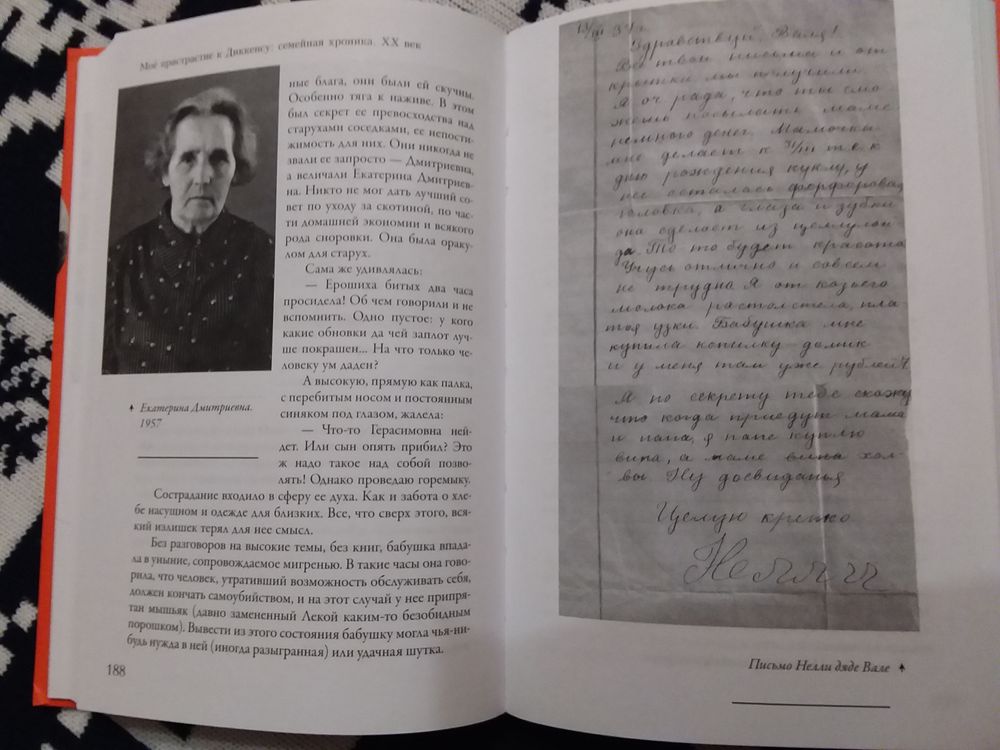 Моё пристрастие к Диккенсу: семейная хроника. XX век
ные блага, они были ей скучны.
Особенно тяга к наживе. В этом
был секрет ее превосходства над
старухами соседками, ее непости-
жимость для них. Они никогда не
звали ее запросто — Дмитриевна,
а величали Екатерина Дмитриев-
на. Никто не мог дать лучший со-
вет по уходу за скотиной, по час-
ти домашней экономии и всякого
рода сноровки. Она была ораку-
лом для старух.
Сама же удивлялась:
— Ерошиха битых два часа
просидела! Об чем говорили и не
вспомнить. Одно пустое: у кого
какие обновки да чей заплот луч-
ше покрашен... На что только че-
ловеку ум даден?
А высокую, прямую как палка,
с перебитым носом и постоянным
синяком под глазом, жалела:
— Что-то Герасимовна ней-
дет. Или сын опять прибил? Это
ж надо такое над собой позво-
лять! Однако проведаю горемыку.
Екатерина Дмитриевна.
1957
Сострадание входило в сферу ее духа. Как и забота о хле-
бе насущном и одежде для близких. Все, что сверх этого, вся-
кий излишек терял для нее смысл.
Без разговоров на высокие темы, без книг, бабушка впада-
ла в уныние, сопровождаемое мигренью. В такие часы она гово-
рила, что человек, утративший возможность обслуживать себя,
должен кончать самоубийством, и на этот случай у нее припря-
тан мышьяк (давно замененный Лекой каким-то безобидным
порошком). Вывести из этого состояния бабушку могла чья-ни-
будь нужда в ней (иногда разыгранная) или удачная шутка.
188
Здравствуй, Валя!
Все твои письма и от
крытки мы получили.
Я оч рада, что ты смо
жешь посылать маме
немного денег. Мамочка
мне делает к 31/III т е к
дню рождения куклу, у
нее осталась форфоровая
головка, а глаза и зубки
она сделает из целлулой
да. То то будет красота
Учусь отлично и совсем
не трудна Я от козьего
молока растолстела, пла
тья узки. Бабушка мне
купила копилку домик
и у меня там уже рублей 7
Я по секрету тебе скажу
что когда приедут мама
и папа, я папе куплю
вина, а маме вина хал-
вы. Ну досвиданья
Целую крепко
Нелли
Письмо Нелли дяде Вале